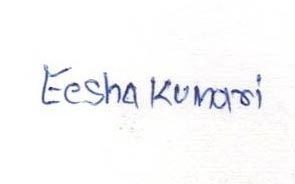 Eesha Kumari